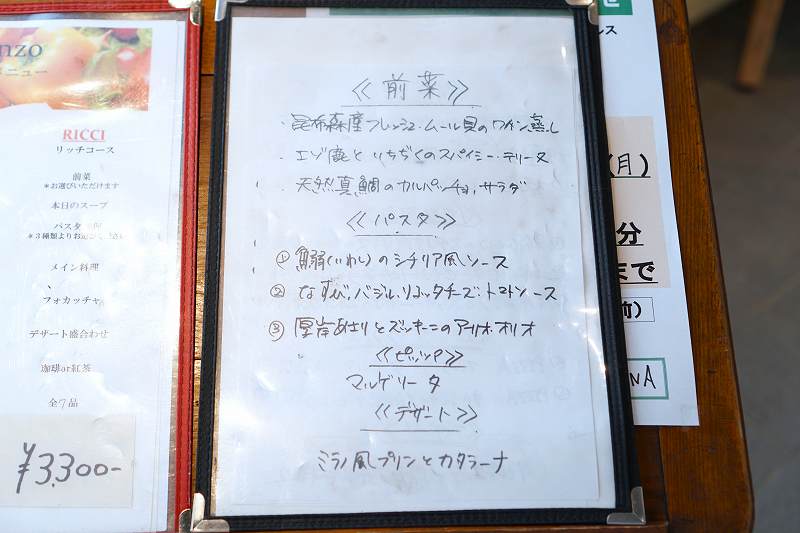 nzo
ニュー
RICCI
リッチコース
前菜
＊お選びいただけます
本日のスープ
パスタ
＊3種類よりお選び
メイン料理
フォカッチャ
デザート盛合わせ
珈琲or紅茶
全7品
¥3,300-
《前菜》
・昆布森産フレッシュ・ムール貝のワイン蒸し
・エゾ鹿といちぢくのスパイシー・テリーヌ
・天然真鯛のカルパッチョ、サラダ
《パスタ》
① 鰯(いわし)のシチリア風ソース
② なすび、バジル、リコッタチーズ・トマトソース
③ 厚岸あさりとズッキーニのアーリオ・オーリオ
《ピッツァ》
マルゲリータ
《デザート》
ミラノ風プリンとカタラーナ
せ
レス
(月)
分
まで
前)
NA